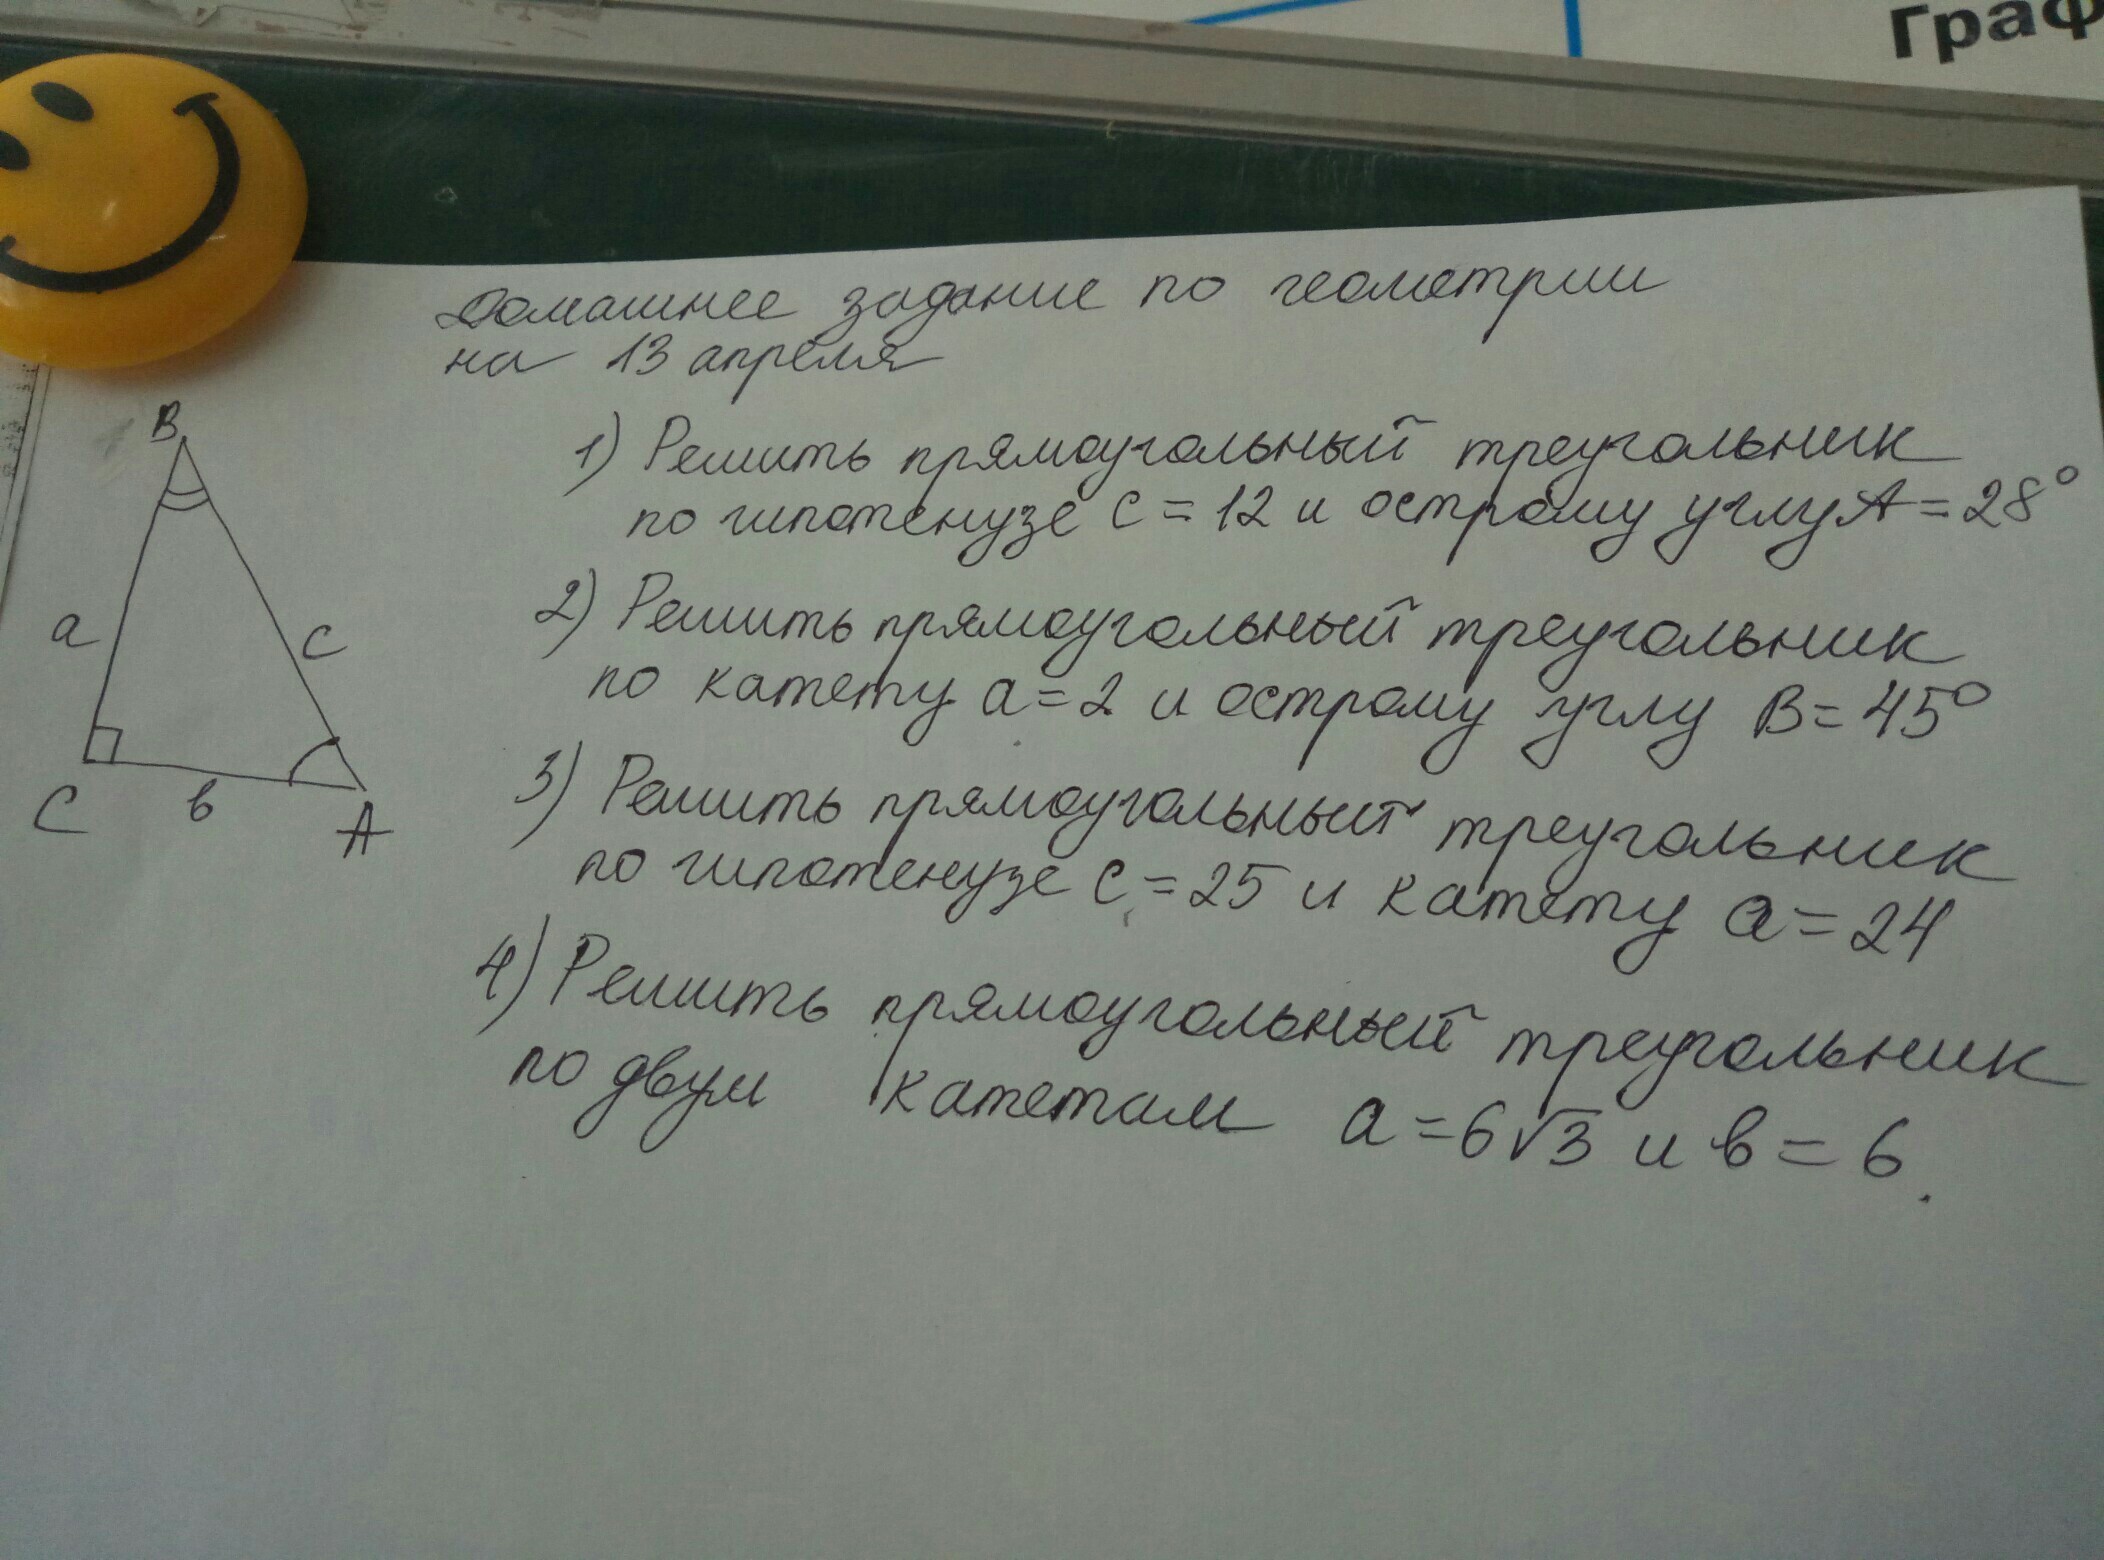 Граф
Домашнее задание по геометрии
на 13 апреля
B
a
c
C
в
A
1) Решить прямоугольный треугольник
по гипотенузе c = 12 и острому углу A = 28°
2) Решить прямоугольный треугольник
по катету a = 2 и острому углу B = 45°
3) Решить прямоугольный треугольник
по гипотенузе c = 25 и катету a = 24
4) Решить прямоугольный треугольник
по двум катетам a = 6√3 и в = 6.